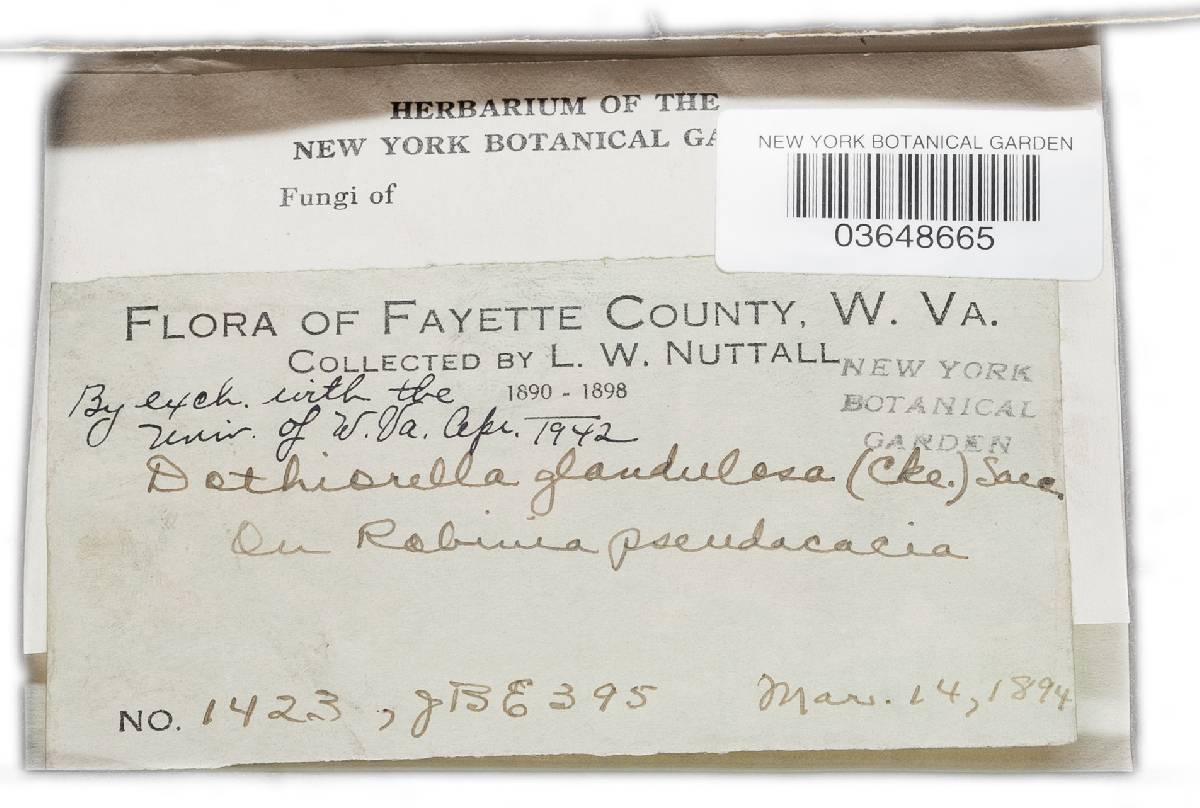 HERBARIUM OF THE
NEW YORK BOTANICAL GA
Fungi of
NEW YORK BOTANICAL GARDEN
03648665
FLORA OF FAYETTE COUNTY, W. VA.
COLLECTED BY L. W. NUTTALL
1890 - 1898
By exch. with the
Univ. of W. Va. Apr. 1942
NEW YORK
BOTANICAL
GARDEN
Dothiorella glandulosa (Cke.) Sacc.
On Robinia pseudacacia
NO. 1423, JBE 395 Mar. 14, 1894